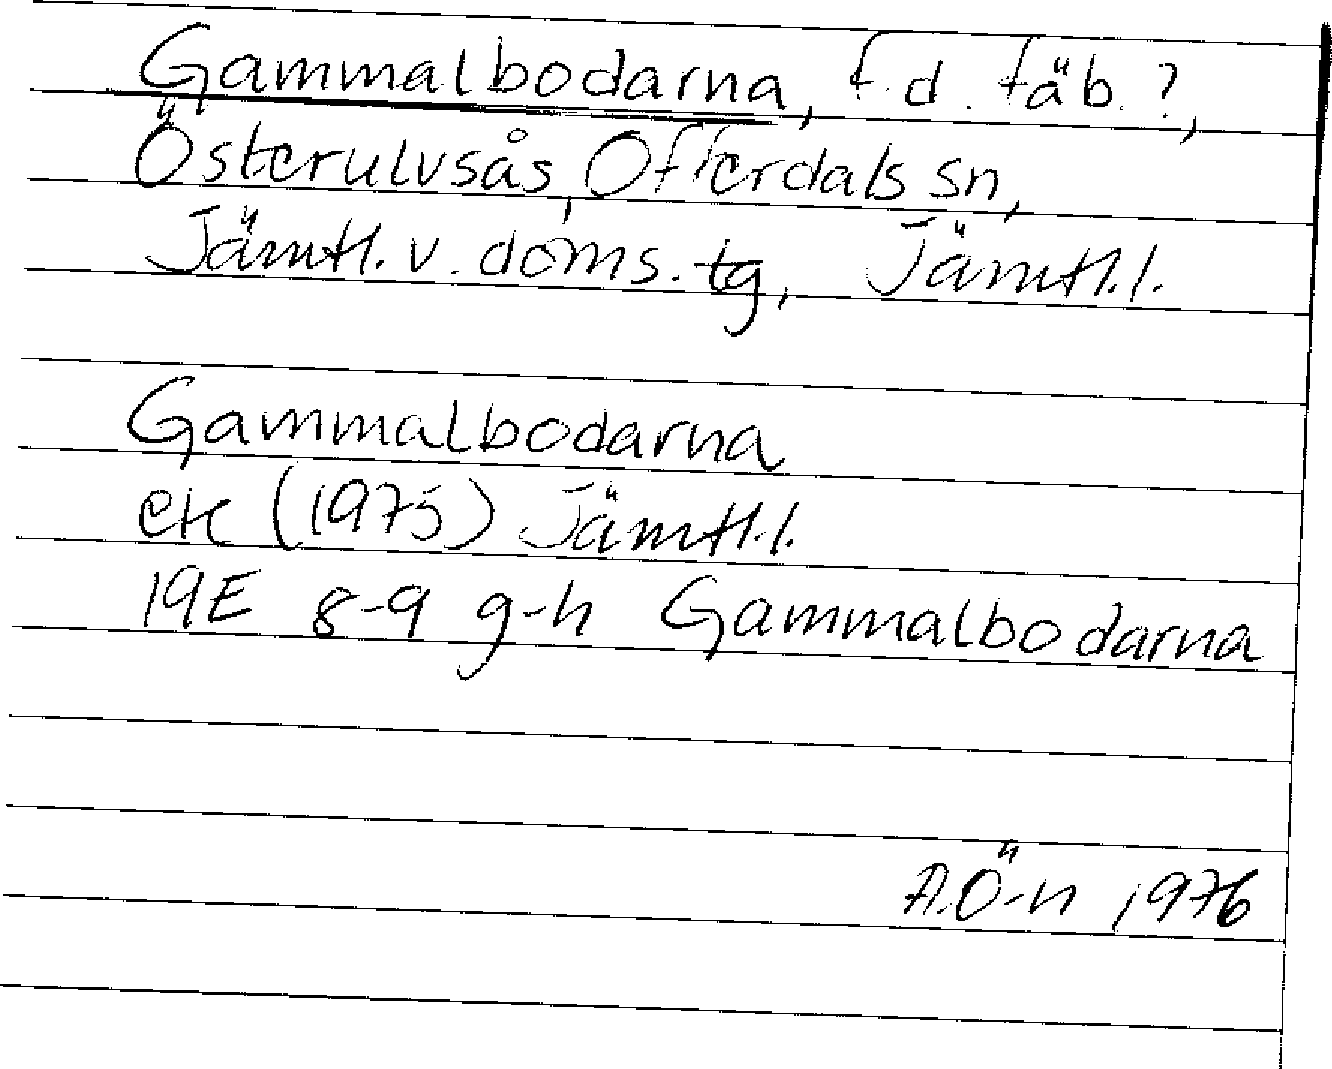 Gammalbodarna, f.d. fäb.?,
Österulvsås, Offerdals sn,
Jämtl. v. doms. tg, Jämtl.l.
Gammalbodarna
ek (1975) Jämtl.l.
19E 8-9 g-h Gammalbodarna
A.Ö-n 1976